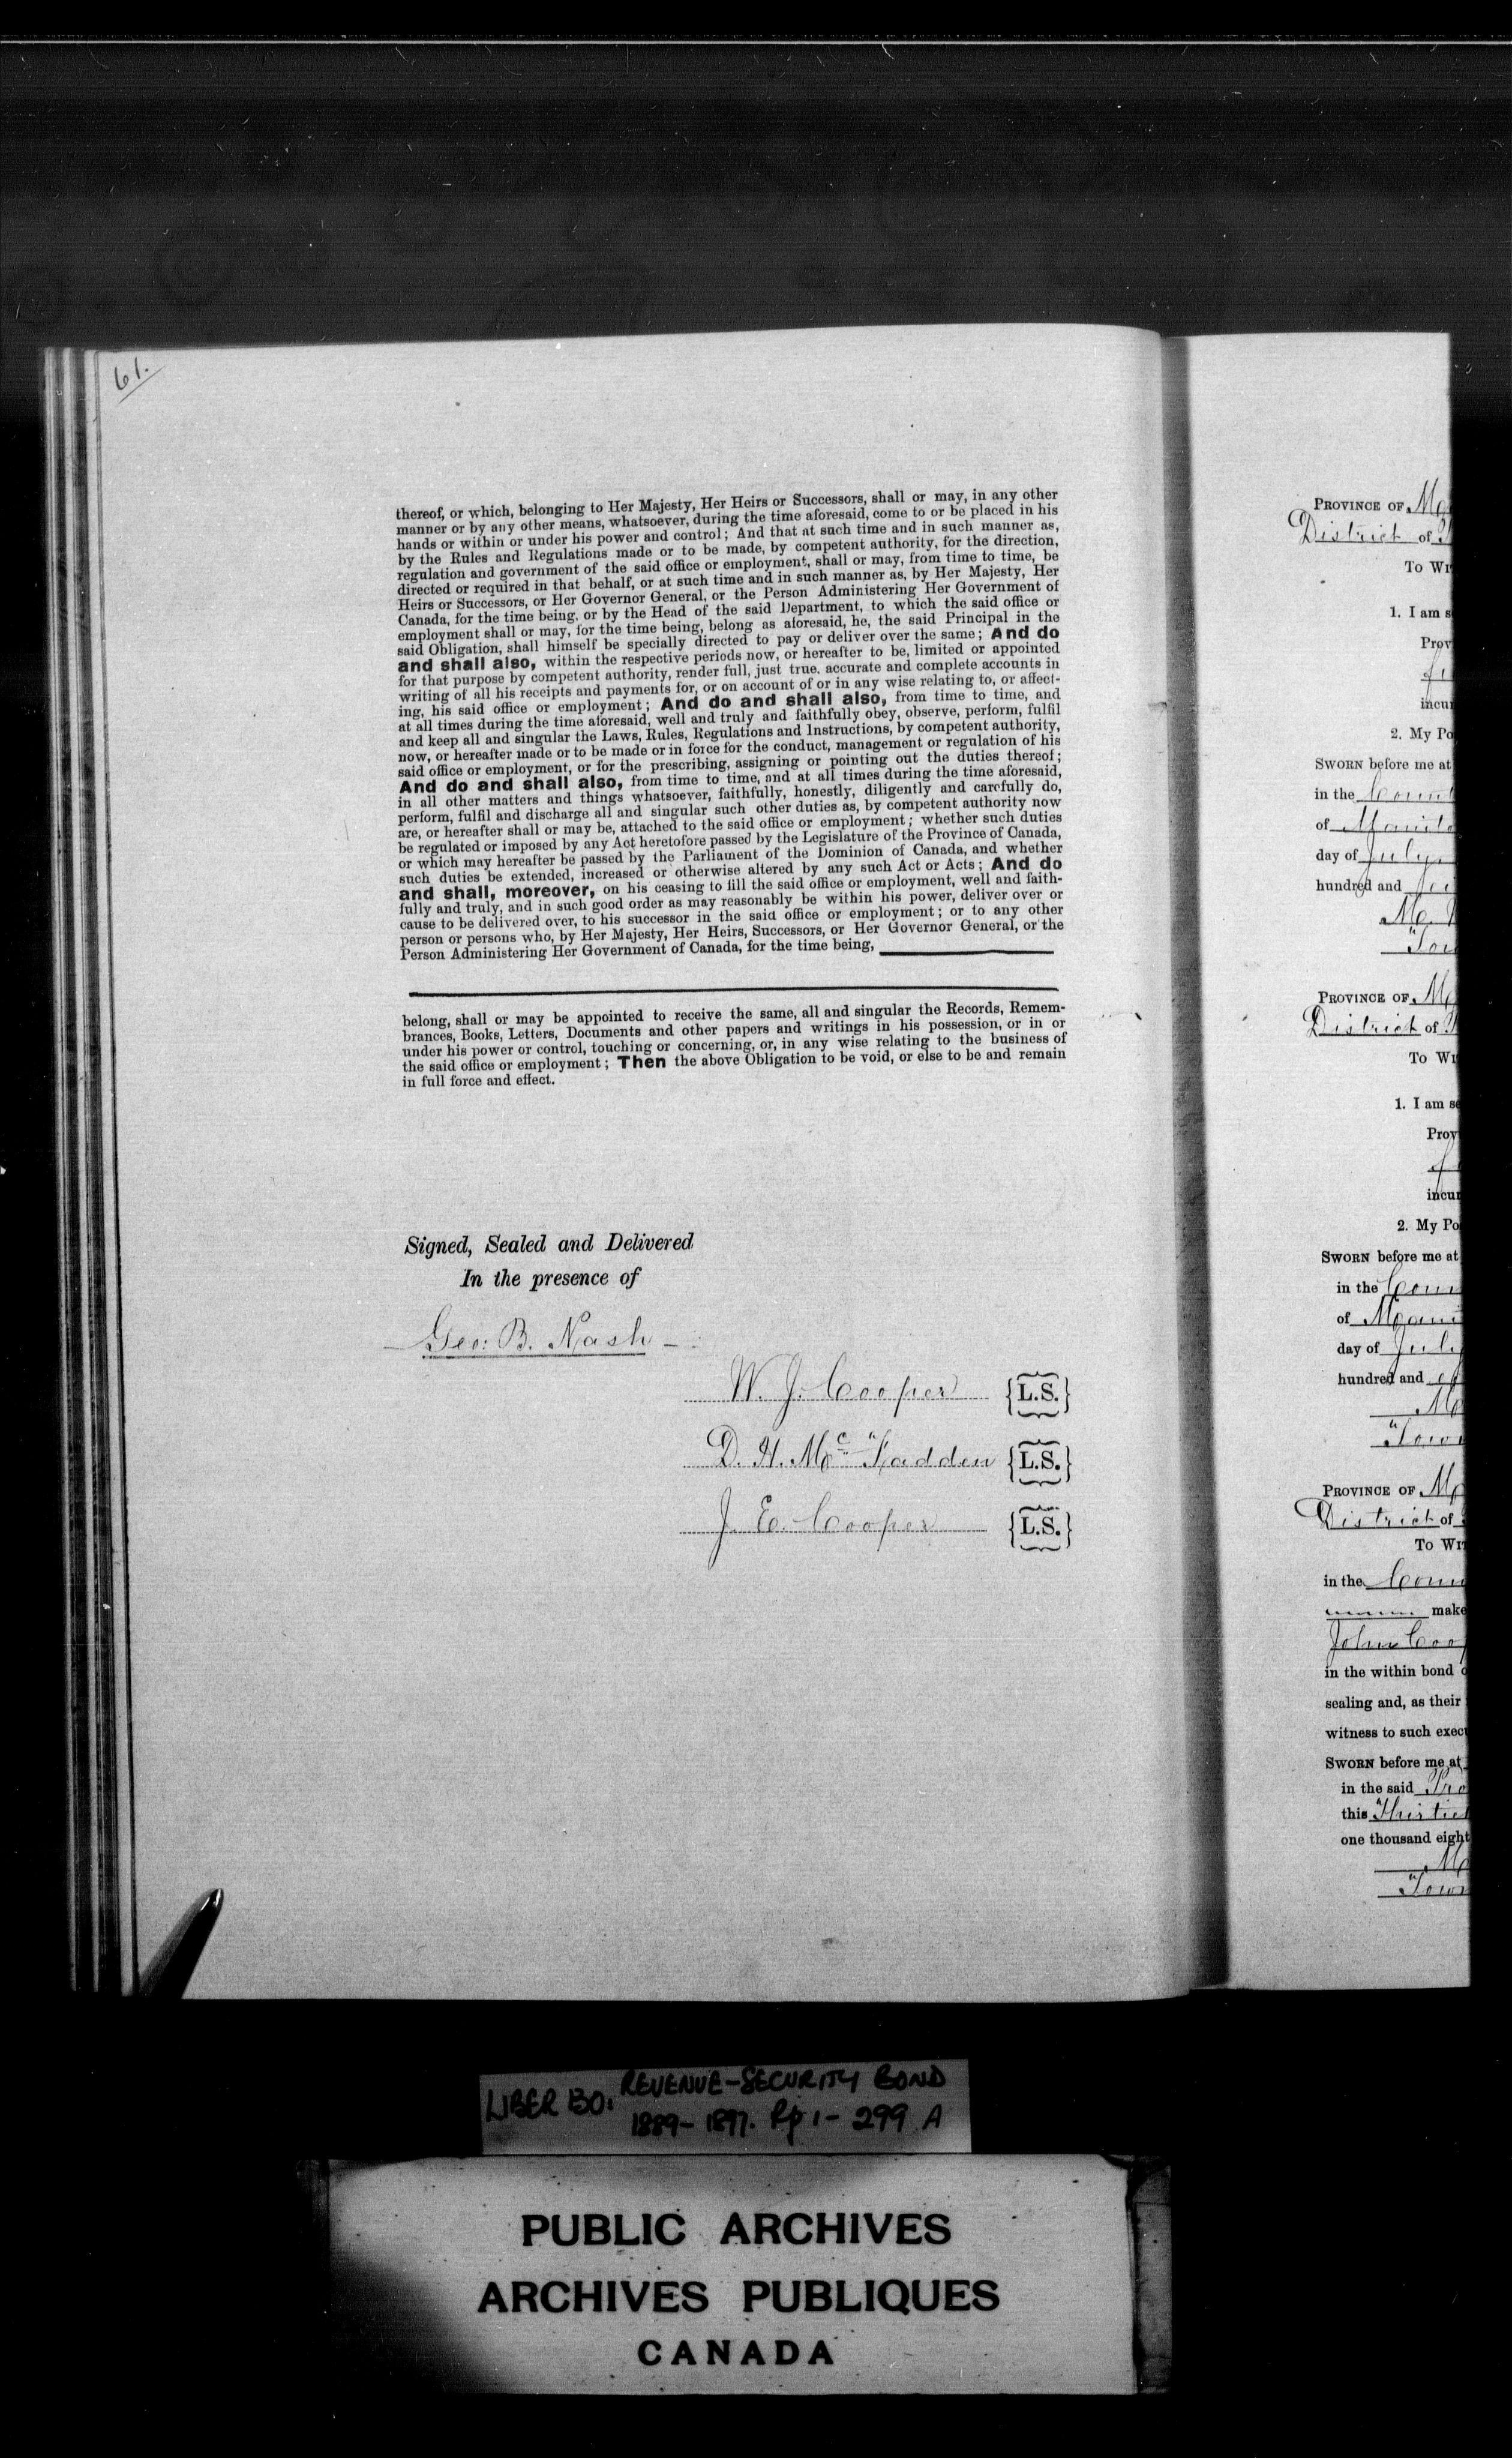 61.
thereof, or which, belonging to Her Majesty, Her Heirs or Successors, shall or may, in any other
manner or by any other means, whatsoever, during the time aforesaid, come to or be placed in his
hands or within or under his power and control; And that at such time and in such manner as,
by the Rules and Regulations made or to be made, by competent authority, for the direction,
regulation and government of the said office or employment, shall or may, from time to time, be
directed or required in that behalf, or at such time and in such manner as, by Her Majesty, Her
Heirs or Successors, or Her Governor General, or the Person Administering Her Government of
Canada, for the time being, or by the Head of the said Department, to which the said office or
employment shall or may, for the time being, belong as aforesaid, he, the said Principal in the
said Obligation, shall himself be specially directed to pay or deliver over the same; And do
and shall also, within the respective periods now, or hereafter to be, limited or appointed
for that purpose by competent authority, render full, just true. accurate and complete accounts in
writing of all his receipts and payments for, or on account of or in any wise relating to, or affect-
ing, his said office or employment; And do and shall also, from time to time, and
at all times during the time aforesaid, well and truly and faithfully obey, observe, perform, fulfil
and keep all and singular the Laws, Rules, Regulations and Instructions, by competent authority,
now, or hereafter made or to be made or in force for the conduct, management or regulation of his
said office or employment, or for the prescribing, assigning or pointing out the duties thereof;
And do and shall also, from time to time, and at all times during the time aforesaid,
in all other matters and things whatsoever, faithfully, honestly, diligently and carefully do,
perform, fulfil and discharge all and singular such other duties as, by competent authority now
are, or hereafter shall or may be, attached to the said office or employment; whether such duties
be regulated or imposed by any Act heretofore passed by the Legislature of the Province of Canada,
or which may hereafter be passed by the Parliament of the Dominion of Canada, and whether
such duties be extended, increased or otherwise altered by any such Act or Acts; And do
and shall, moreover, on his ceasing to fill the said office or employment, well and faith-
fully and truly, and in such good order as may reasonably be within his power, deliver over or
cause to be delivered over, to his successor in the said office or employment; or to any other
person or persons who, by Her Majesty, Her Heirs, Successors, or Her Governor General, or the
Person Administering Her Government of Canada, for the time being,
belong, shall or may be appointed to receive the same, all and singular the Records, Remem-
brances, Books, Letters, Documents and other papers and writings in his possession, or in or
under his power or control, touching or concerning, or, in any wise relating to the business of
the said office or employment; Then the above Obligation to be void, or else to be and remain
in full force and effect.
Signed, Sealed and Delivered
In the presence of
Geo: B. Nash
W. J. Cooper {L.S.}
D. H. Mc Fadden {L.S.}
J. E. Cooper {L.S.}
PROVINCE OF
District of
To
1. I am
2. My
SWORN before me at
in the
of
day of July
hundred and
PROVINCE OF
District of
To
1. I am
2. My
SWORN before me at
in the
of
day of July
hundred and
PROVINCE OF
District of
To
in the
make
John
in the within bond
sealing and, as their
witness to such
SWORN before me at
in the said
this
one thousand
LIBER 130: REVENUE-SECURITY BOND
1889-1897. Pp 1-299 A
PUBLIC ARCHIVES
ARCHIVES PUBLIQUES
CANADA